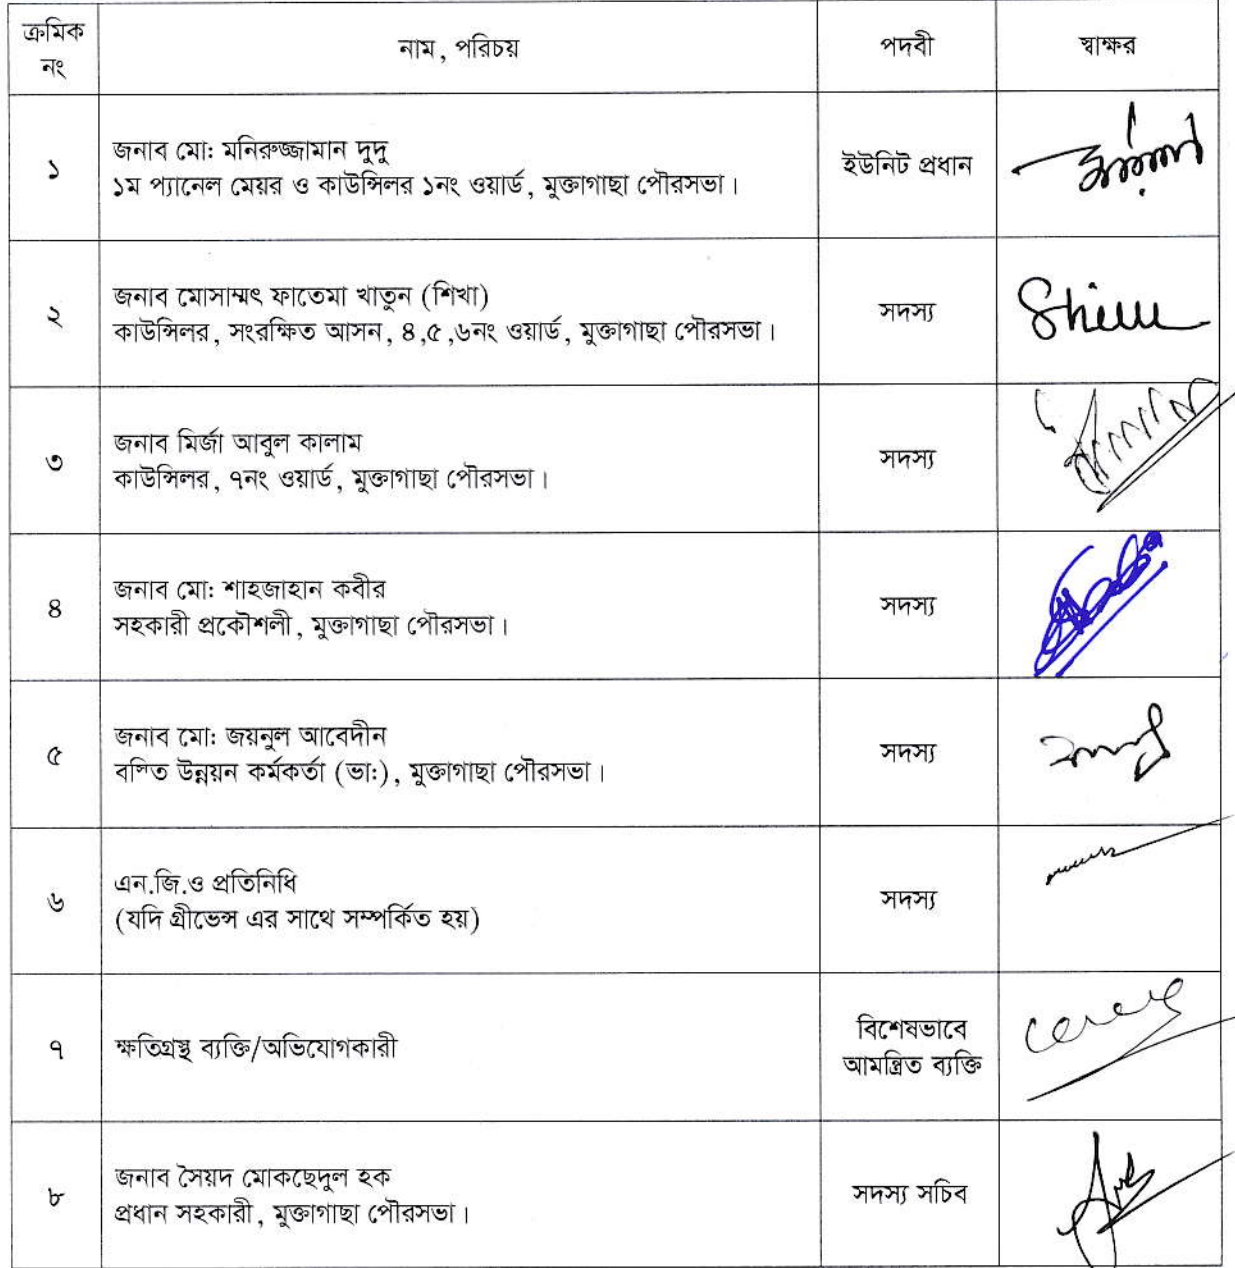 ক্রমিক নং	নাম, পরিচয়	পদবী	স্বাক্ষর
১	জনাব মো: মনিরুজ্জামান দুদু
১ম প্যানেল মেয়র ও কাউন্সিলর ১নং ওয়ার্ড, মুক্তাগাছা পৌরসভা।	ইউনিট প্রধান
২	জনাব মোসাম্মৎ ফাতেমা খাতুন (শিখা)
কাউন্সিলর, সংরক্ষিত আসন, ৪,৫,৬নং ওয়ার্ড, মুক্তাগাছা পৌরসভা।	সদস্য
৩	জনাব মির্জা আবুল কালাম
কাউন্সিলর, ৭নং ওয়ার্ড, মুক্তাগাছা পৌরসভা।	সদস্য
৪	জনাব মো: শাহজাহান কবীর
সহকারী প্রকৌশলী, মুক্তাগাছা পৌরসভা।	সদস্য
৫	জনাব মো: জয়নুল আবেদীন
বস্তি উন্নয়ন কর্মকর্তা (ভা:), মুক্তাগাছা পৌরসভা।	সদস্য
৬	এন.জি.ও প্রতিনিধি
(যদি গ্রীভেন্স এর সাথে সম্পর্কিত হয়)	সদস্য
৭	ক্ষতিগ্রস্থ ব্যক্তি/অভিযোগকারী	বিশেষভাবে আমন্ত্রিত ব্যক্তি
৮	জনাব সৈয়দ মোকছেদুল হক
প্রধান সহকারী, মুক্তাগাছা পৌরসভা।	সদস্য সচিব